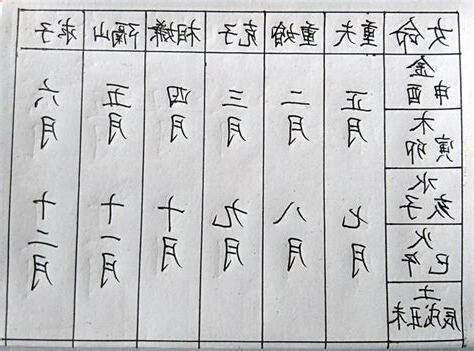 女命 重夫 重婚 克子 相嫌 隔山 求子
金
申酉
木
寅卯
水
亥子
火
巳午
土
辰戌丑未
正月 二月 三月 四月 五月 六月
七月 八月 九月 十月 十一月 十二月